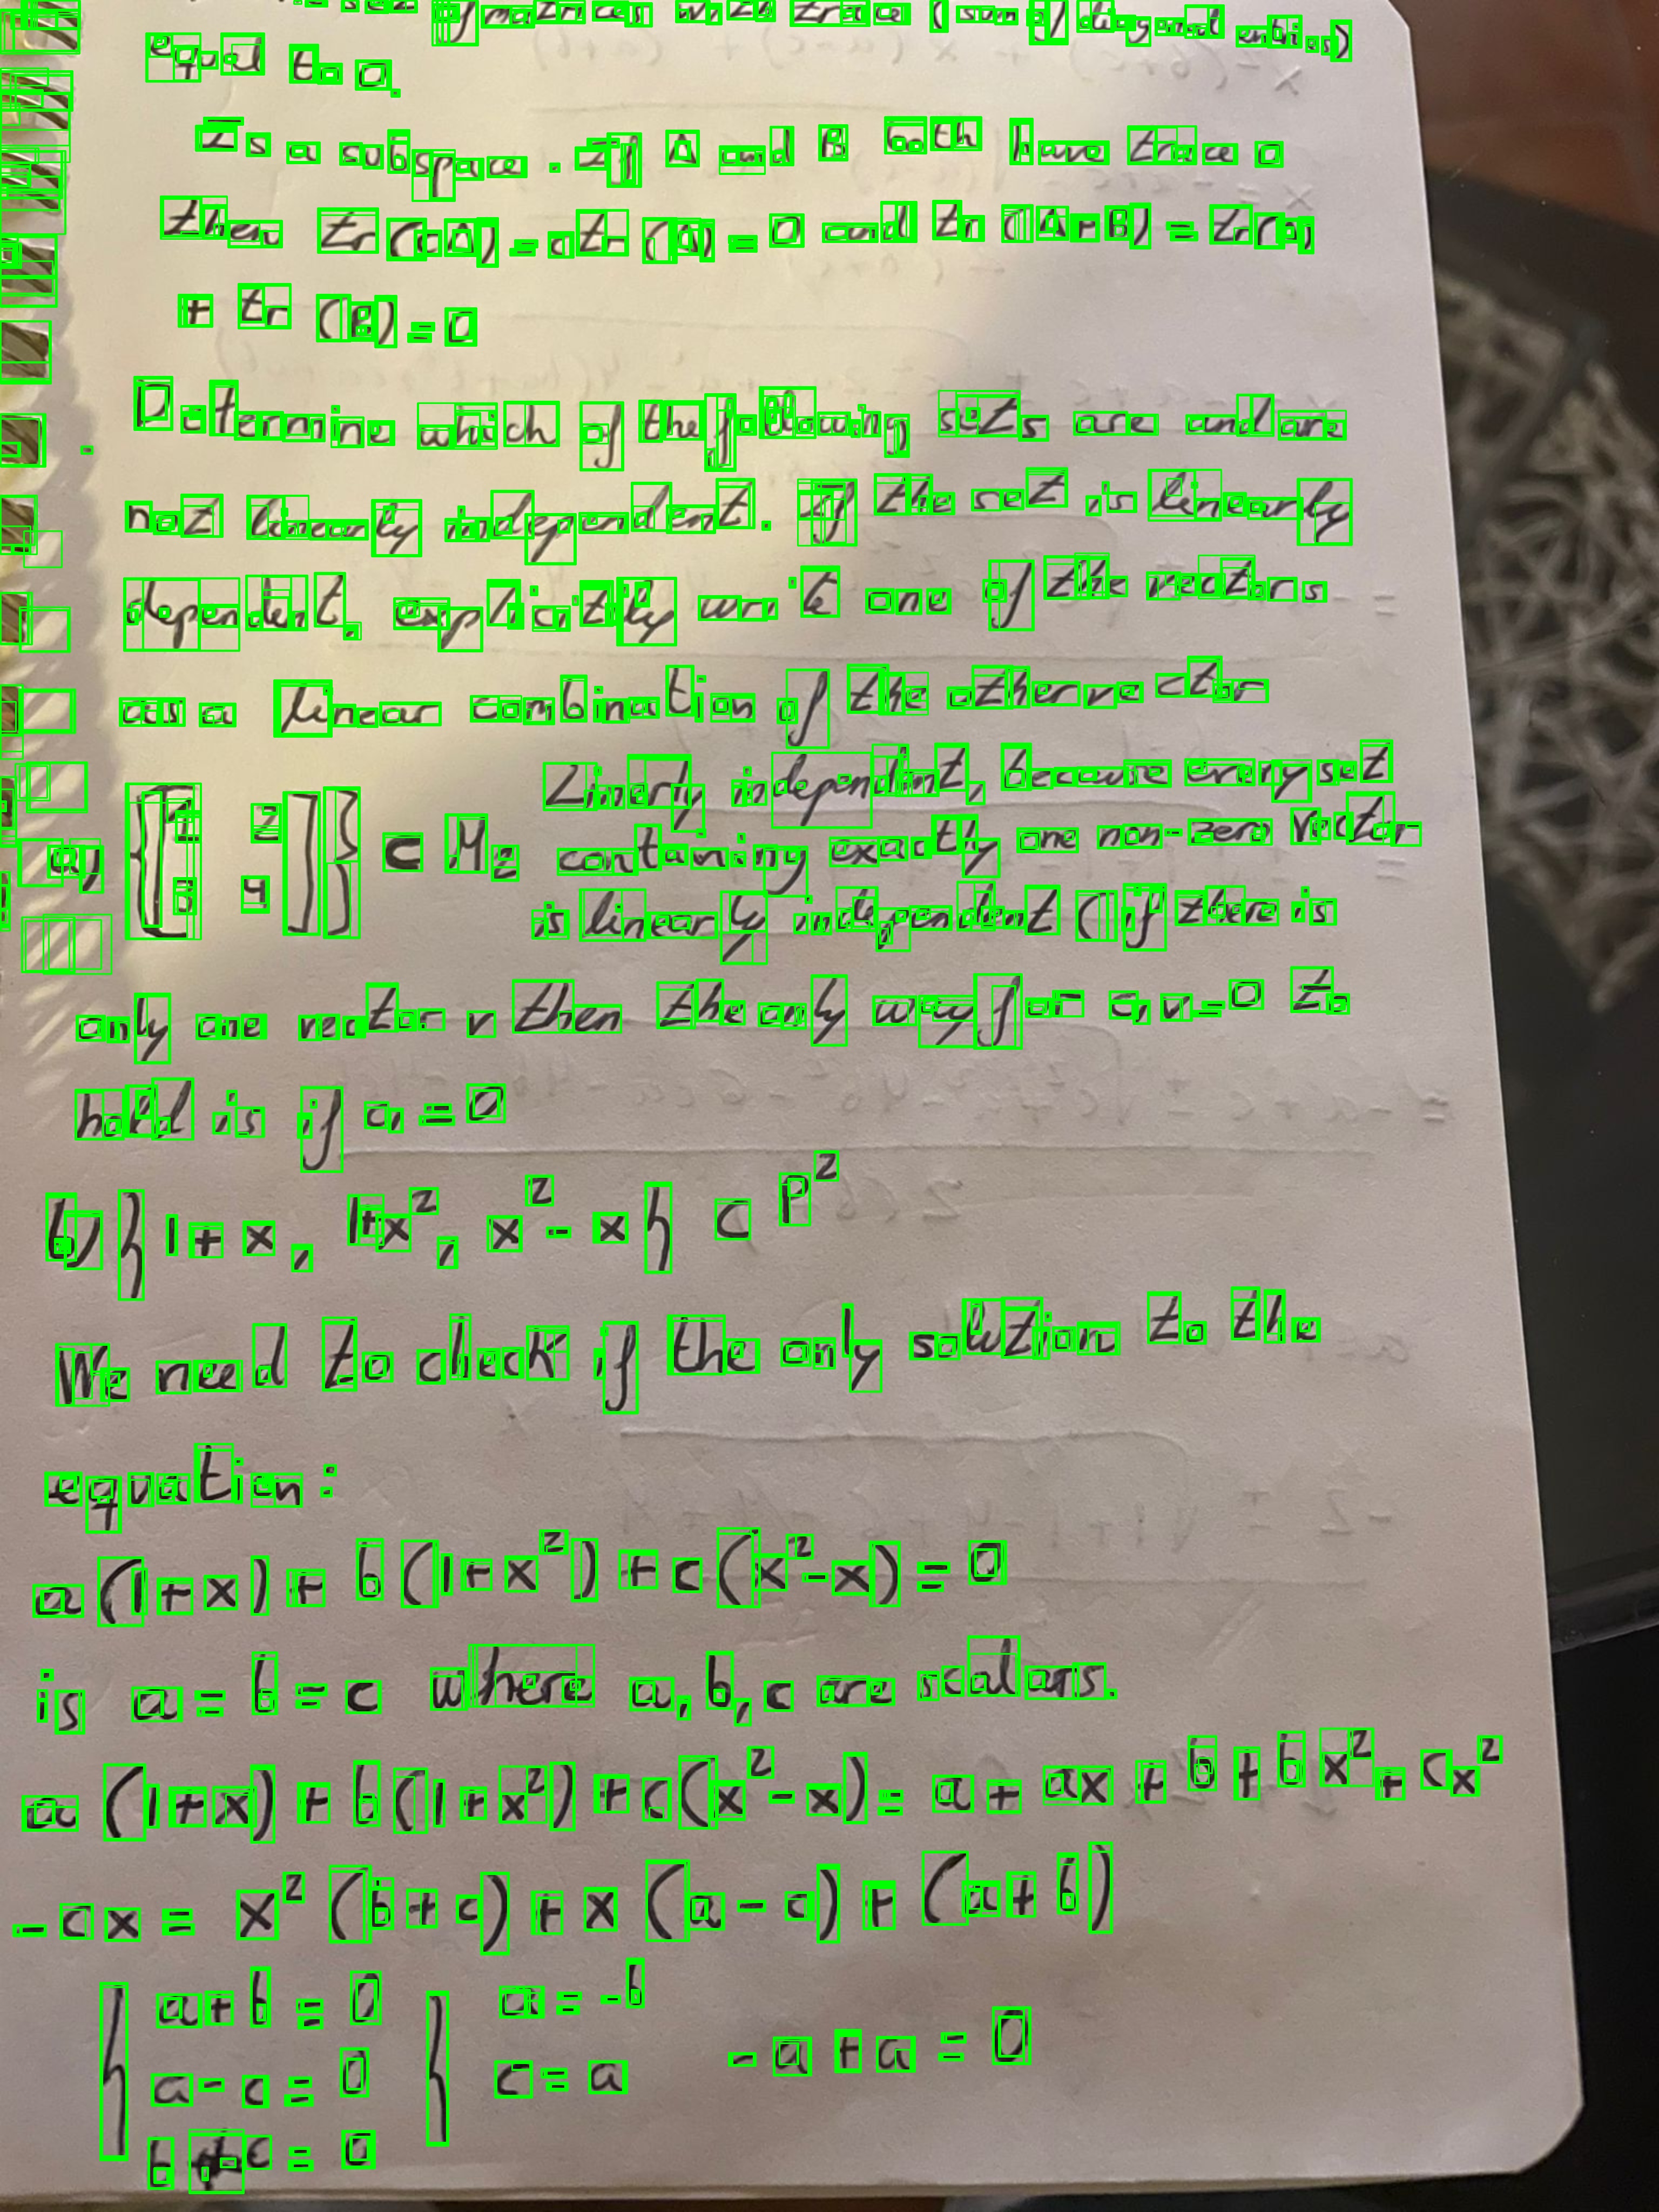 of matrices with trace (sum of diagonal entries)
equal to 0.
Is a subspace. If A and B both have trace 0
then tr(cA) = ctr(A) = 0 and tr(A+B) = tr(A)
+ tr(B) = 0
Determine which of the following sets are and are
not linearly independent. If the set is linearly
dependent, explicitly write one of the vectors
as a linear combination of the other vector
a) {[1 2
3 4]} ⊂ M₂
Linerly independent, because every set
containing exactly one non-zero vector
is linearly independent (if there is
only one vector v then the only way for c₁v=0 to
hold is if c₁ = 0
b) {1+x, 1+x², x²-x} ⊂ P²
We need to check if the only solution to the
equation:
a(1+x) + b(1+x²) + c(x²-x) = 0
is a = b = c where a, b, c are scalars.
a(1+x) + b(1+x²) + c(x²-x) = a + ax + b + bx² + cx²
-cx = x²(b+c) + x(a-c) + (a+b)
{ a+b = 0 { a = -b
a-c = 0 c = a -a+a = 0
b+c = 0